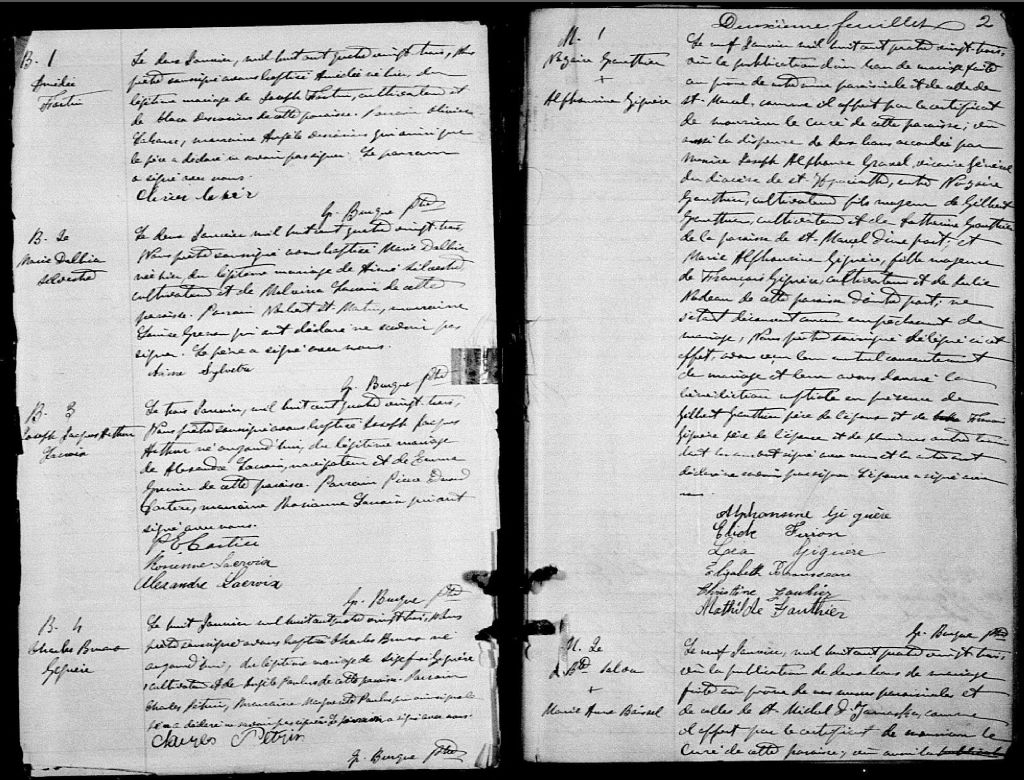 B. 1
Amédée
Fortin
Le deux Janvier, mil huit cent quatre vingt trois, Nous
prêtre soussigné avons baptisé Amédée né hier, du
légitime mariage de Joseph Fortin, cultivateur et
de de cette paroisse. Parrain Olivier
marraine qui ainsi que
le père a déclaré ne savoir pas signer. Le parrain
a signé avec nous.
G. Burque ptre
B. 2e
Marie Dalbia
Silvestre
Le deux Janvier mil huit cent quatre vingt trois,
Nous prêtre soussigné avons baptisé Marie Dalbia
née hier, du légitime mariage de Aimé Silvestre
cultivateur et de de cette
paroisse. Parrain St. Martin, marraine
qui ont déclaré ne savoir pas
signer. Le père a signé avec nous.
Aimé Sylvestre
G. Burque ptre
B. 3
Joseph Jacques Arthur
Lacroix
Le trois Janvier, mil huit cent quatre vingt trois,
Nous prêtre soussigné avons baptisé Joseph Jacques
Arthur né aujourd'hui, du légitime mariage
de Alexandre Lacroix, navigateur et de Emma
de cette paroisse. Parrain Pierre
Cartier, marraine Rosanna Lacroix qui ont
signé avec nous.
P E Cartier
Rosienne Lacroix
Alexandre Lacroix
G. Burque ptre
B. 4
Charles Bruno
Giguère
Le huit Janvier mil huit cent quatre vingt trois, Nous
prêtre soussigné avons baptisé Charles Bruno né
aujourd'hui, du légitime mariage de Giguère
cultivateur et de Paulus de cette paroisse. Parrain
Charles Pétrin, marraine Marguerite Paulus qui ainsi que le
père a déclaré ne savoir pas signer. Le parrain a signé avec nous.
Charles Pétrin
G. Burque ptre
Deuxième feuillet 2
M. 1
Nazaire Gauthier
+
Alphonsine Giguère
Le neuf Janvier mil huit cent quatre vingt trois,
vu la publication d'un ban de mariage faite
au prône de notre messe paroissiale et de celle de
St. Marcel, comme il appert par le certificat
de monsieur le curé de cette paroisse; vu
aussi la dispense de deux bans accordée par
Monsieur Joseph Alphonse Gravel, vicaire Général
du diocèse de St. Hyacinthe, entre Nazaire
Gauthier, cultivateur fils majeur de Gilbert
Gauthier, cultivateur et de Catherine Gauthier
de la paroisse de St. Marcel d'une part; et
Marie Alphonsine Giguère, fille majeure
de François Giguère, cultivateur et de Julie
Nadeau de cette paroisse d'autre part; ne
s'étant découvert aucun empêchement de
mariage, Nous prêtre soussigné délégué à cet
effet, avons reçu leur mutuel consentement
de mariage et leur avons donné la
bénédiction nuptiale en présence de
Gilbert Gauthier père de l'époux et de François
Giguère père de l'épouse et de plusieurs autres
dont les uns ont signé avec nous et les autres ont
déclaré ne savoir pas signer. L'épouse a signé avec
nous.
Alphonsine Giguère
Lea Giguere
Elizabeth Brousseau
Christine Gauthier
Mathilde Gauthier
G. Burque ptre
M. 2e
J. Bte Salva
+
Marie Anne Boissel
Le neuf Janvier, mil huit cent quatre vingt trois,
vu la publication de deux bans de mariage
faite au prône de nos messes paroissiales et
de celles de St. Michel d'Yamaska, comme
il appert par le certificat de monsieur le
Curé de cette paroisse; vu aussi la